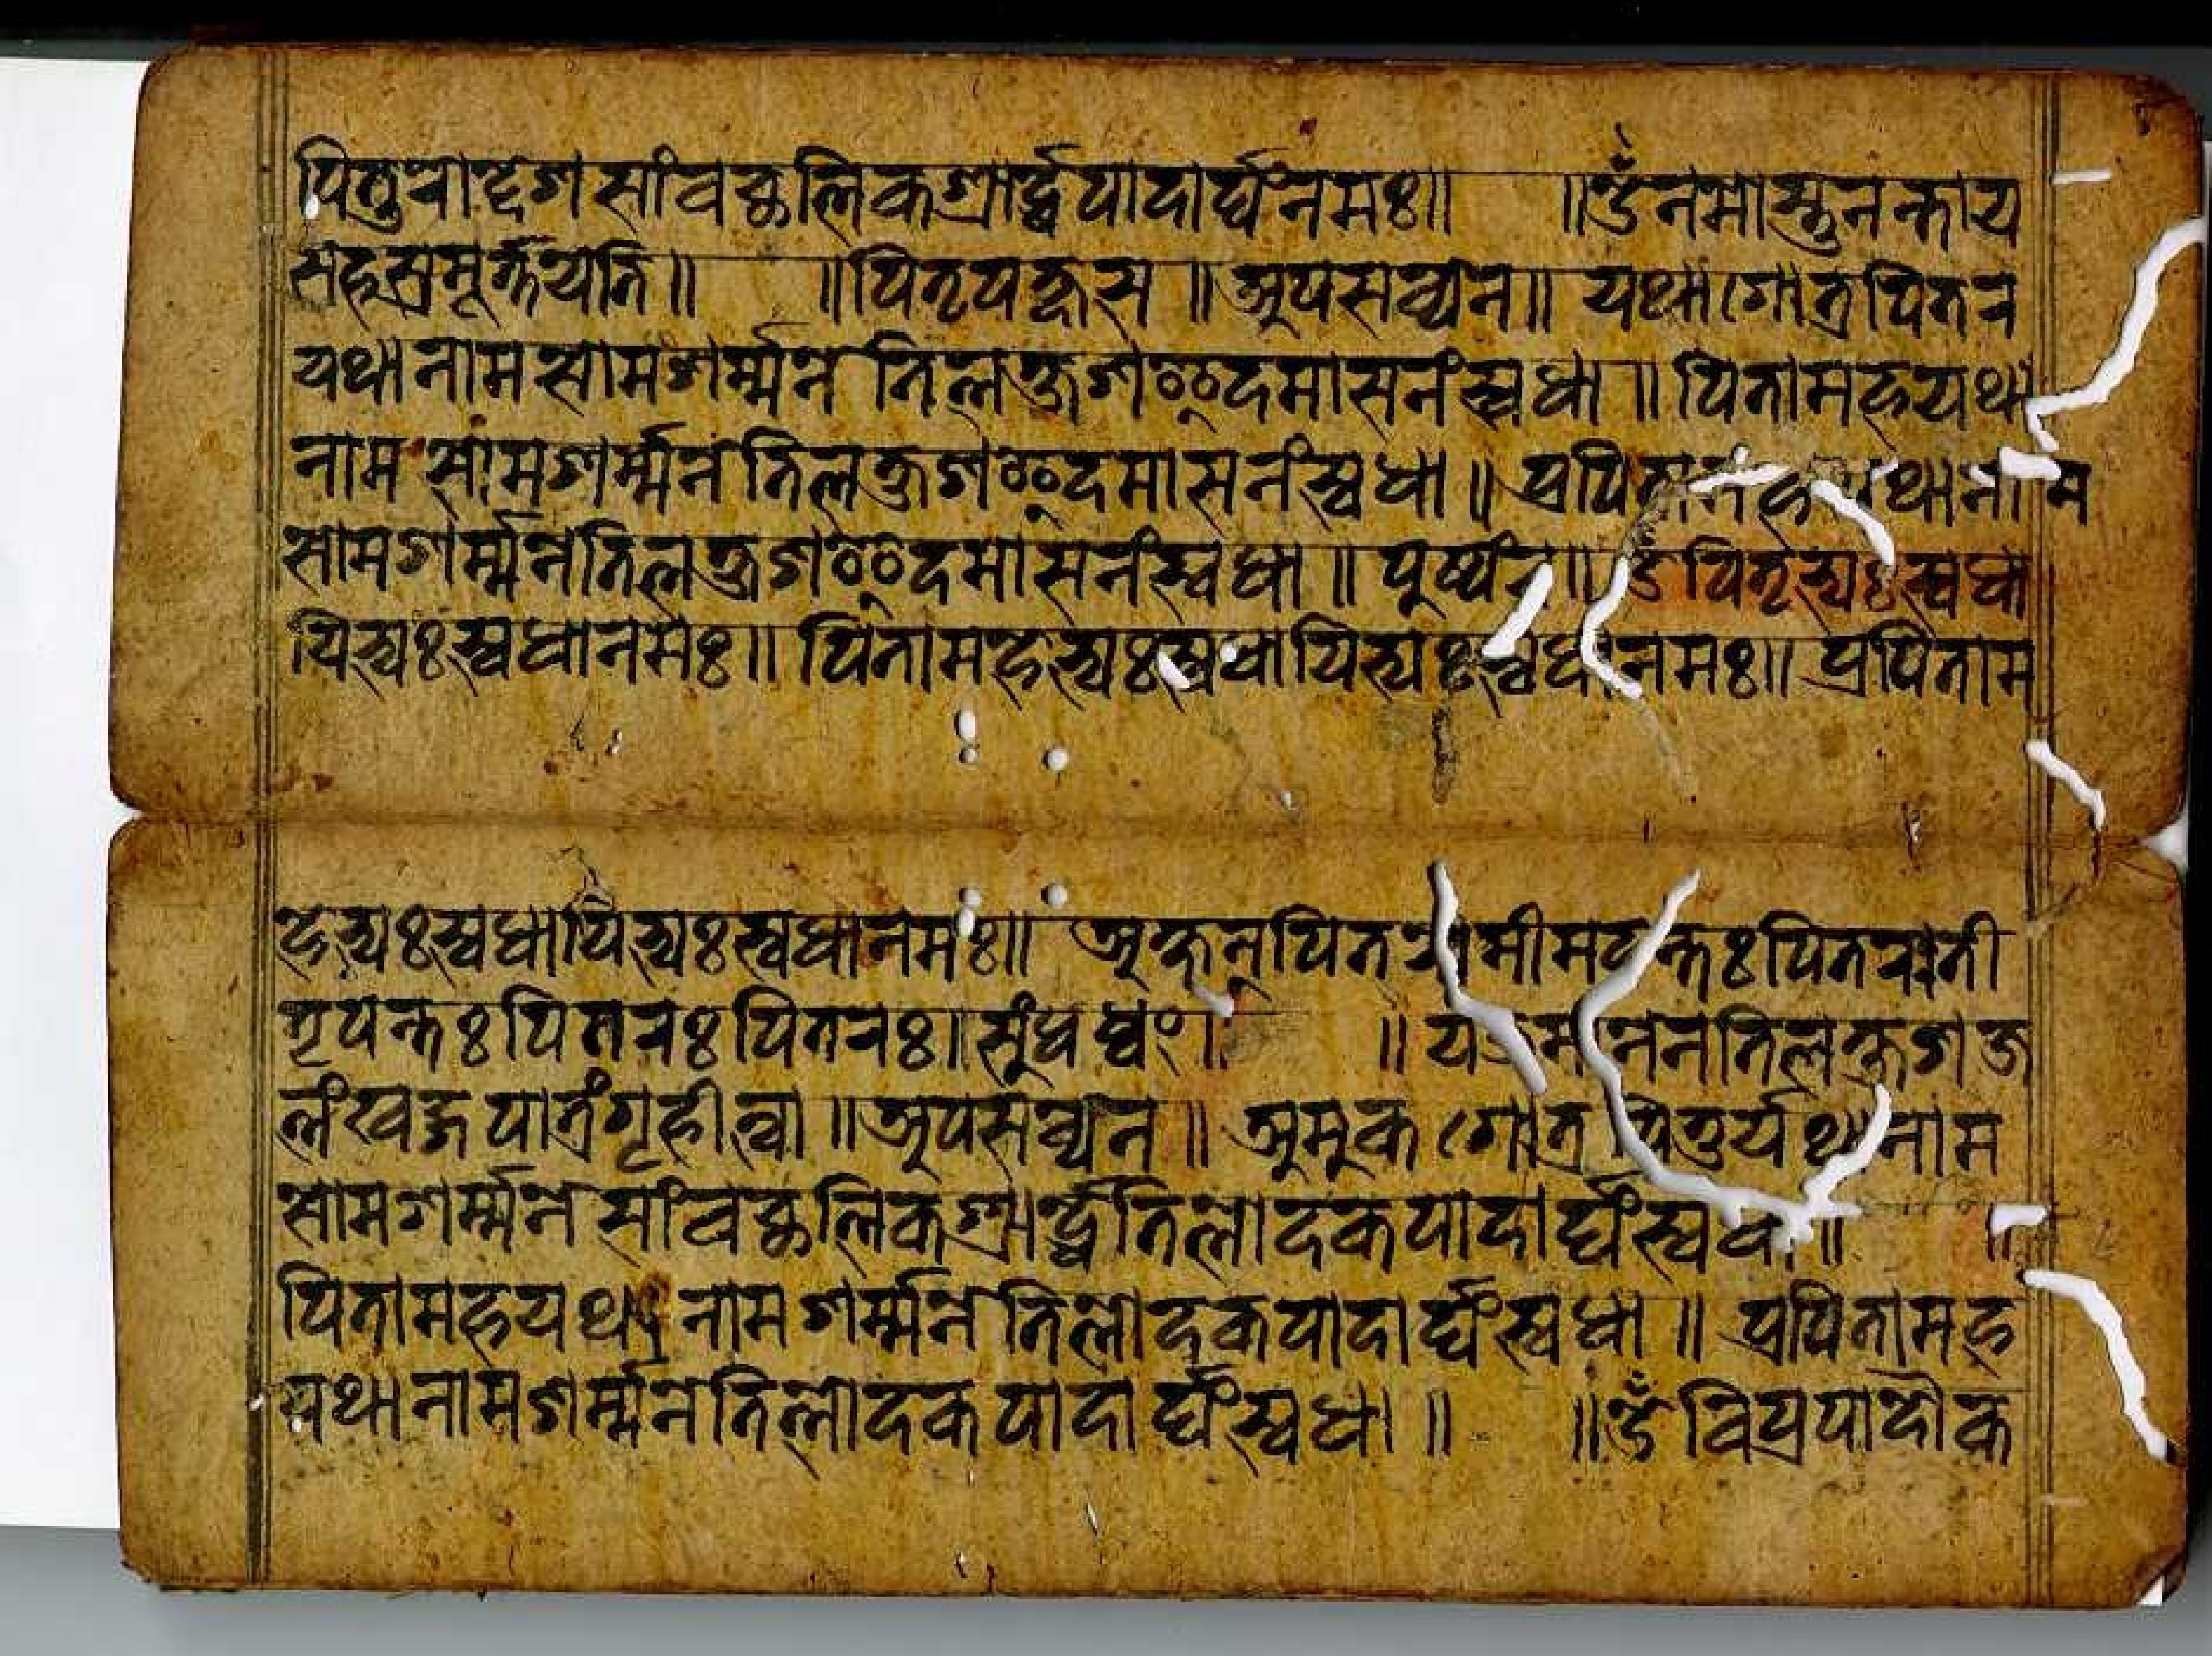 पितुराद्देश सांवच्छलिकश्रार्द्धपादार्घंनमः॥ ॥ॐनमोस्तुनन्ताय
सहस्रमूर्त्तयति॥ ॥पितृपक्षस॥ अपसव्यन॥ यथागोत्रपितर
यथानामसोमशर्म्मन तिलकुश००दमासनंस्वधा॥ पितामहयथा
नाम सोमशर्म्मन तिलकुश००दमासनंस्वधा॥ प्रपितामह यथानाम
सोमशर्म्मनतिलकुश००दमासनंस्वधा॥ पुष्पंन॥ ॐपितृभ्यःस्वधा
यिभ्यःस्वधानमः॥ पितामहेभ्यःस्वधायिभ्यःस्वधानमः॥ प्रपिताम
हेभ्यःस्वधायिभ्यःस्वधानमः॥ अक्षन्पितरोमीमदन्तःपितरोती
तृपन्तःपितरःपितरः॥ सुंधध्वं॥ ॥ यजमाननतिलकुशज
लंखड्गपात्रंगृहीत्वा॥ अपसव्यन॥ अमुकगोत्र पितुर्यथानाम
सोमशर्म्मन सांवच्छलिकश्रार्द्धतिलोदकपादार्घंस्वधा॥ ॥
पितामहयथा नामशर्म्मन तिलोदकपादार्घंस्वधा॥ प्रपितामह
यथानामशर्म्मनतिलोदकपादार्घंस्वधा॥ ॥ॐ विप्रपादौक